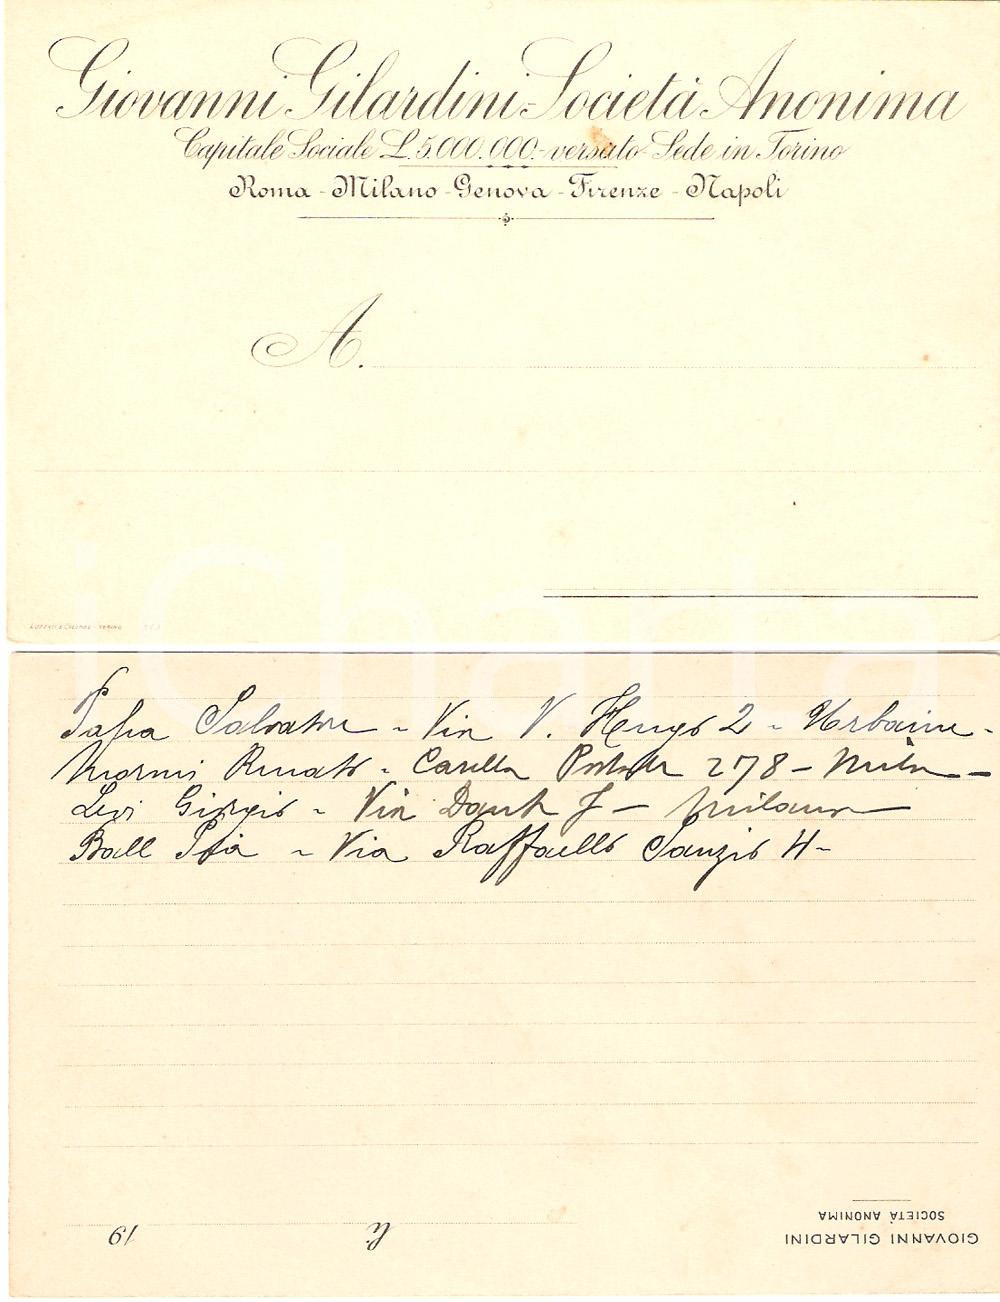 Giovanni Gilardini-Società Anonima
Capitale Sociale L. 5.000.000.- versato - Sede in Torino
Roma - Milano - Genova - Firenze - Napoli
A.
iCharta
Salvatore - Via V. Hugo 2 -
Renato - Casella Postale 278 - Milano -
Levi Giorgio - Via Dante 7 - Milano
Ball Pia - Via Raffaello Sanzio 4 -
GIOVANNI GILARDINI
SOCIETÀ ANONIMA
li 19